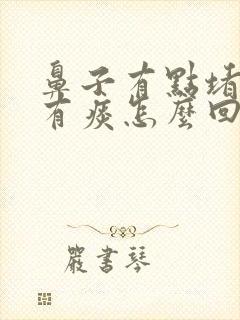 鼻子有點堵
有痰怎麼回
嚴書琴